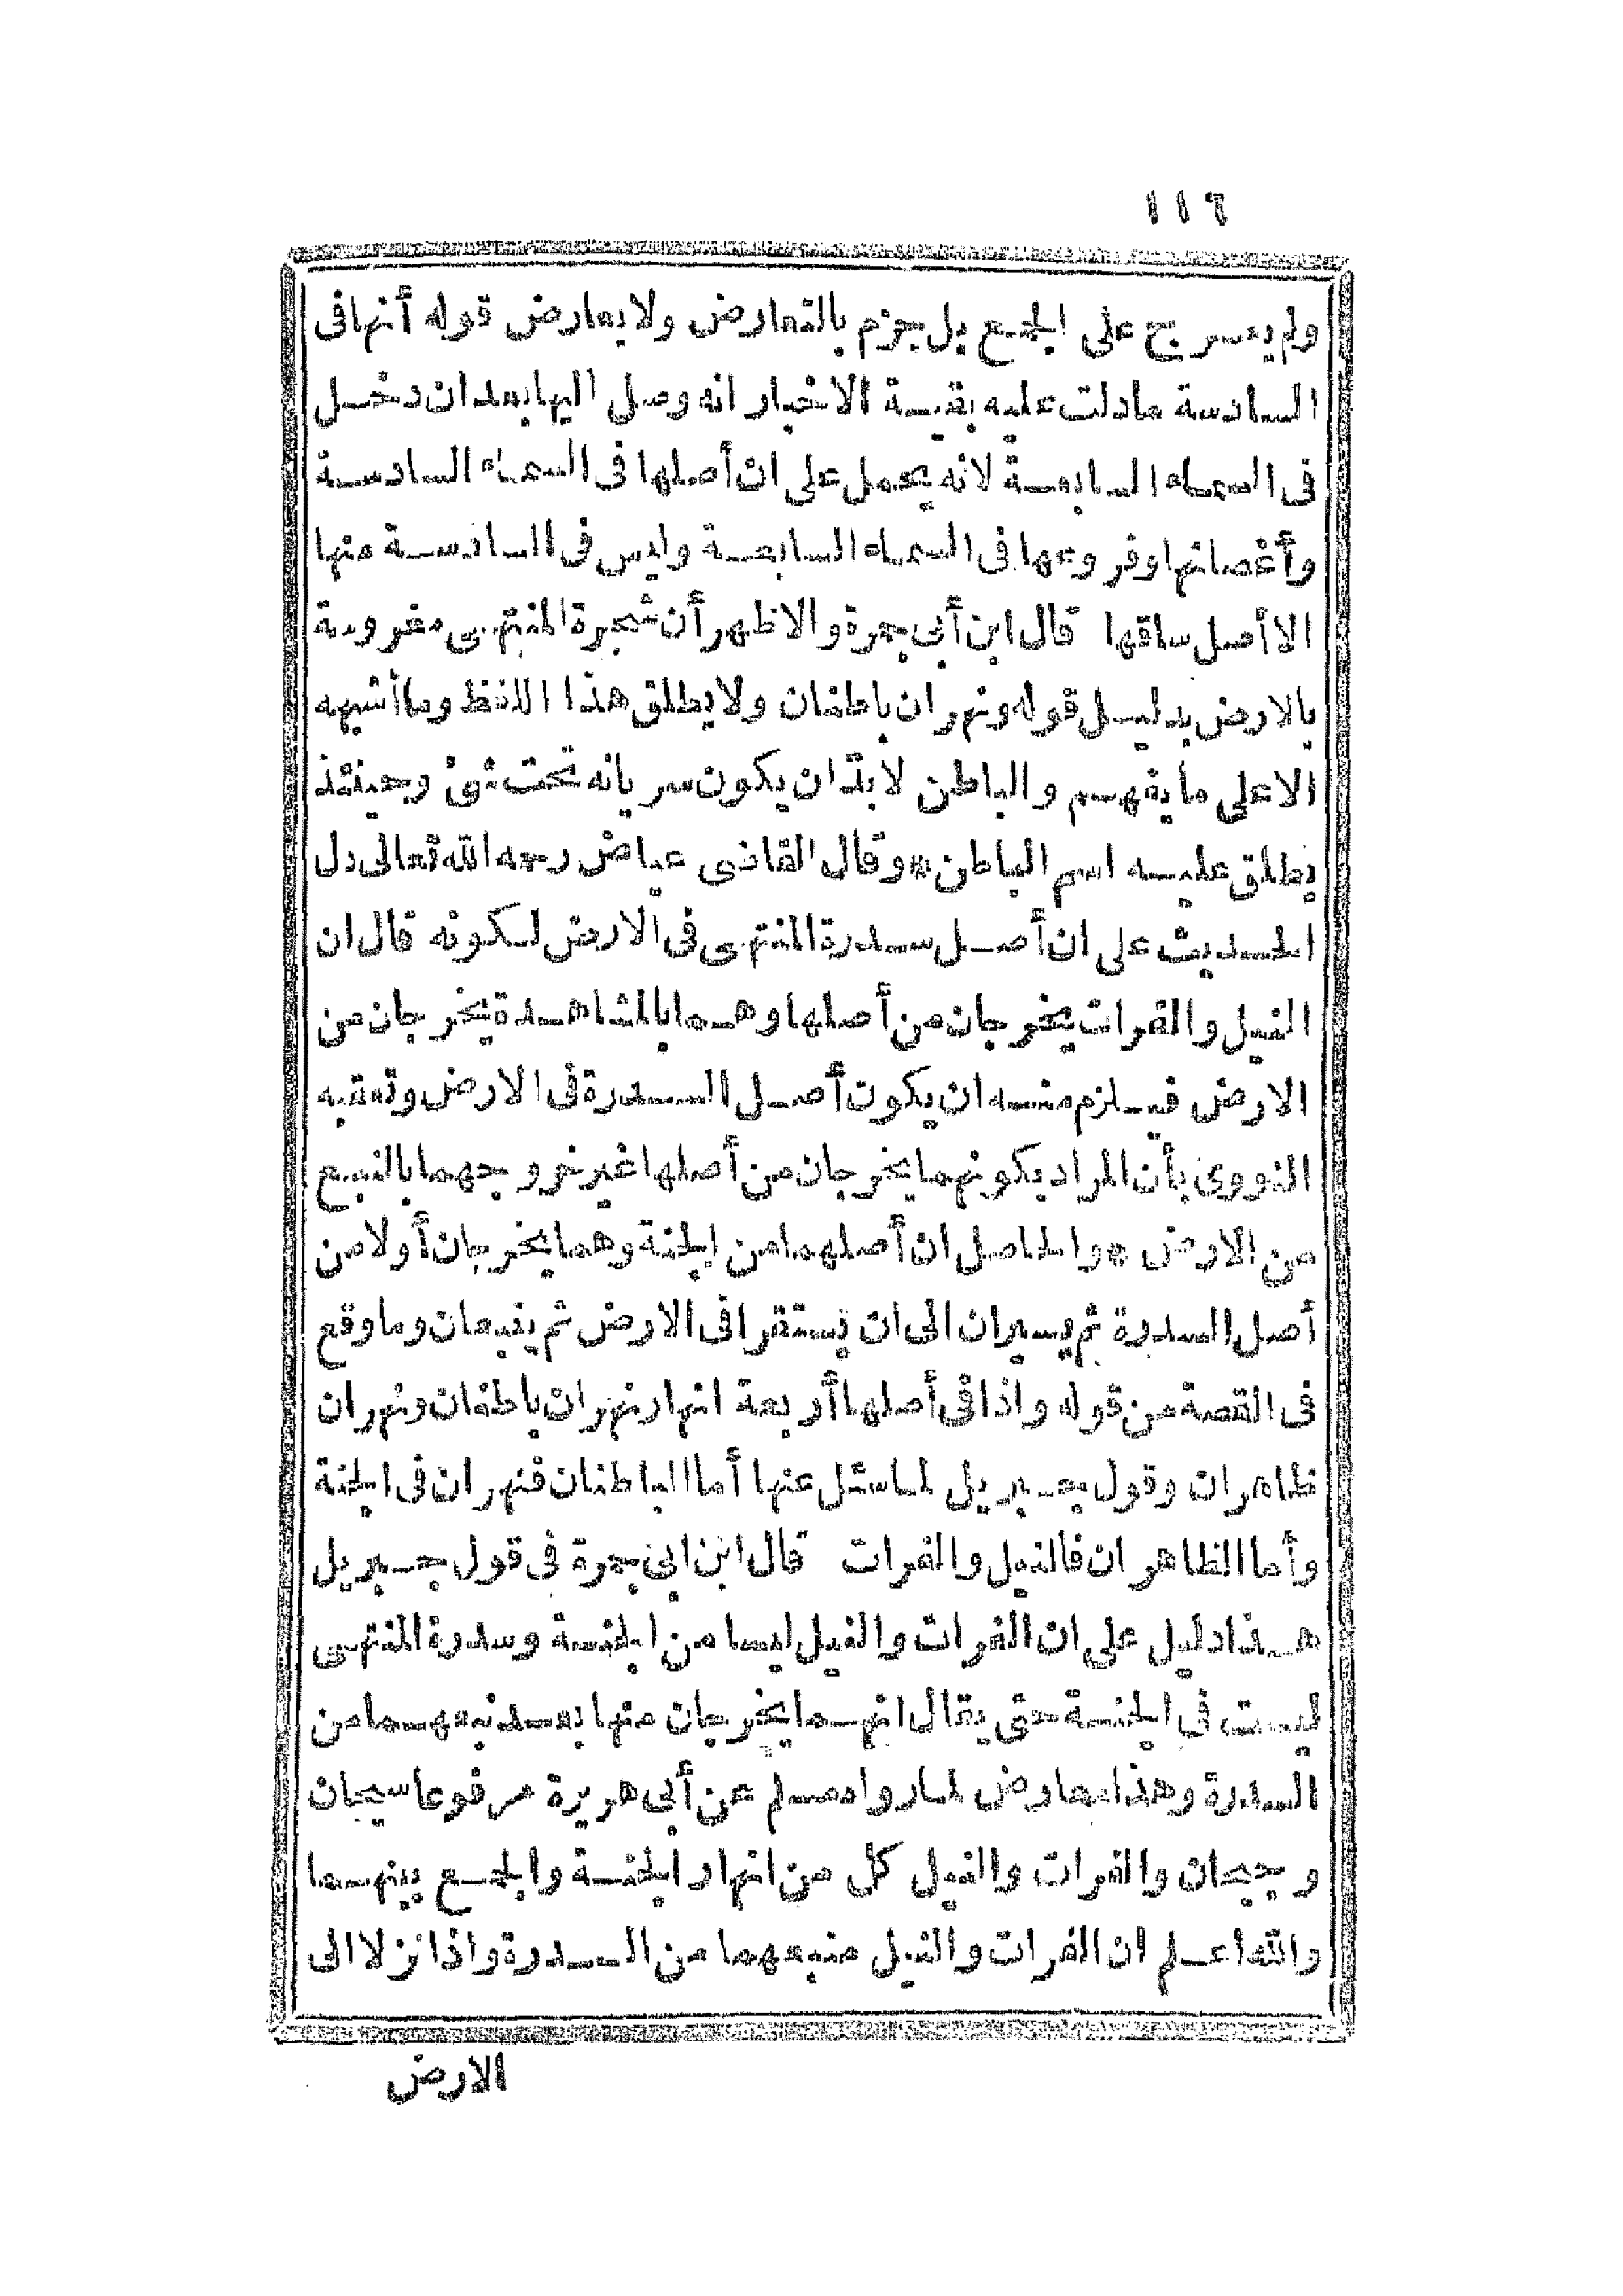 ١١٦
ولم يعسرج على الجمع بل جزم بالتعارض ولا يعارض قوله أنها فى
السادسة مادلت عليه بقيسة الاخبار انه وصل اليها بعد ان دخل
فى السماء السابعة لانه يحمل على ان أصلها فى السماء السادسة
وأغصانها وفروعها فى السماء السابعة وليس فى السادسة منها
الا أصل ساقها قال ابن أبى جمرة والاظهر أن شجرة المنتهى مغروسة
بالارض بدليل قوله ونهران باطنان ولا يطلق هذا اللفظ وما أشبهه
الاعلى ما يفهم والباطن لابدّ ان يكون سريانه تحت شئ وحينئذ
يطلق عليه اسم الباطن * وقال القاضى عياض رحمه الله تعالى دل
الحديث على ان أصل سدرة المنتهى فى الارض لكونه قال ان
النيل والفرات يخرجان من أصلها وهما بالمشاهدة يخرجان من
الارض فيلزم منه ان يكون أصل السدرة فى الارض وتعقبه
النووى بأن المراد بكونهما يخرجان من أصلها غير خروجهما بالنبع
من الارض * والحاصل ان أصلهما من الجنة وهما يخرجان أولا من
أصل السدرة ثم يسيران الى ان يستقرا فى الارض ثم ينبعان وما وقع
فى القصة من قوله واذا فى أصلها أربعة انهار نهران باطنان ونهران
ظاهران وقول جبريل لما سئل عنها أما الباطنان فنهران فى الجنة
وأما الظاهران فالنيل والفرات قال ابن ابى جمرة فى قول جبريل
هذا دليل على ان الفرات والنيل ليسا من الجنة وسدرة المنتهى
ليست فى الجنة حتى يقال انهما يخرجان منها بعد نبعهما من
السدرة وهذا معارض لما رواه مسلم عن أبى هريرة مرفوعا سيحان
وجيحان والفرات والنيل كل من انهار الجنة والجمع بينهما
والله اعلم ان الفرات والنيل منبعهما من السدرة واذا نزلا الى
الارض